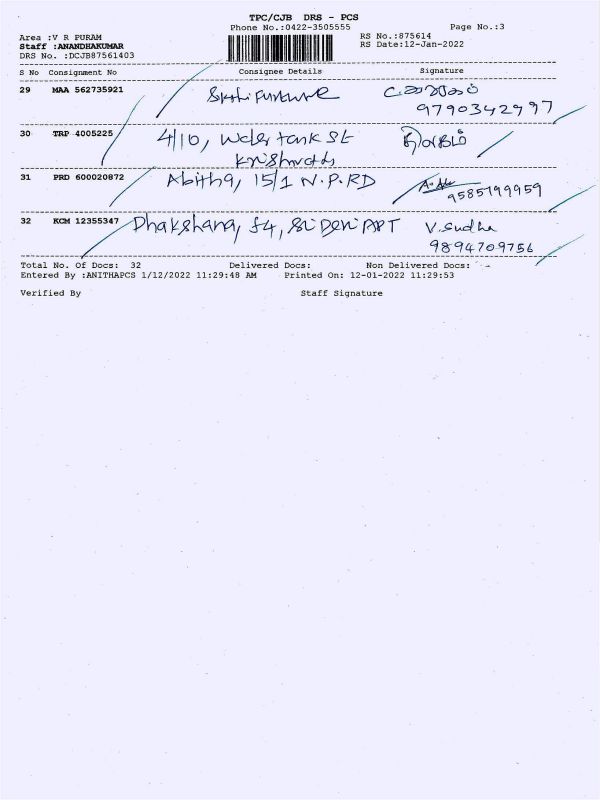 TPC/CJB DRS - PCS
Phone No.:0422-3505555 Page No.:3
Area :V R PURAM RS No.:875614
Staff :ANANDHAKUMAR RS Date:12-Jan-2022
DRS No. :DCJB87561403
S No Consignment No Consignee Details Signature
29 MAA 562735921 Sakthi Furniture
9790342997
30 TRP 4005225 4/10, Water tank St திலகம்
31 PRD 600020872 Abitha, 15/1 N.P.RD
9585799959
32 KCM 12355347 Dhakshana, F4, Sri Devi APT V. Sudha
9894709756
Total No. Of Docs: 32 Delivered Docs: Non Delivered Docs:
Entered By :ANITHAPCS 1/12/2022 11:29:48 AM Printed On: 12-01-2022 11:29:53
Verified By Staff Signature